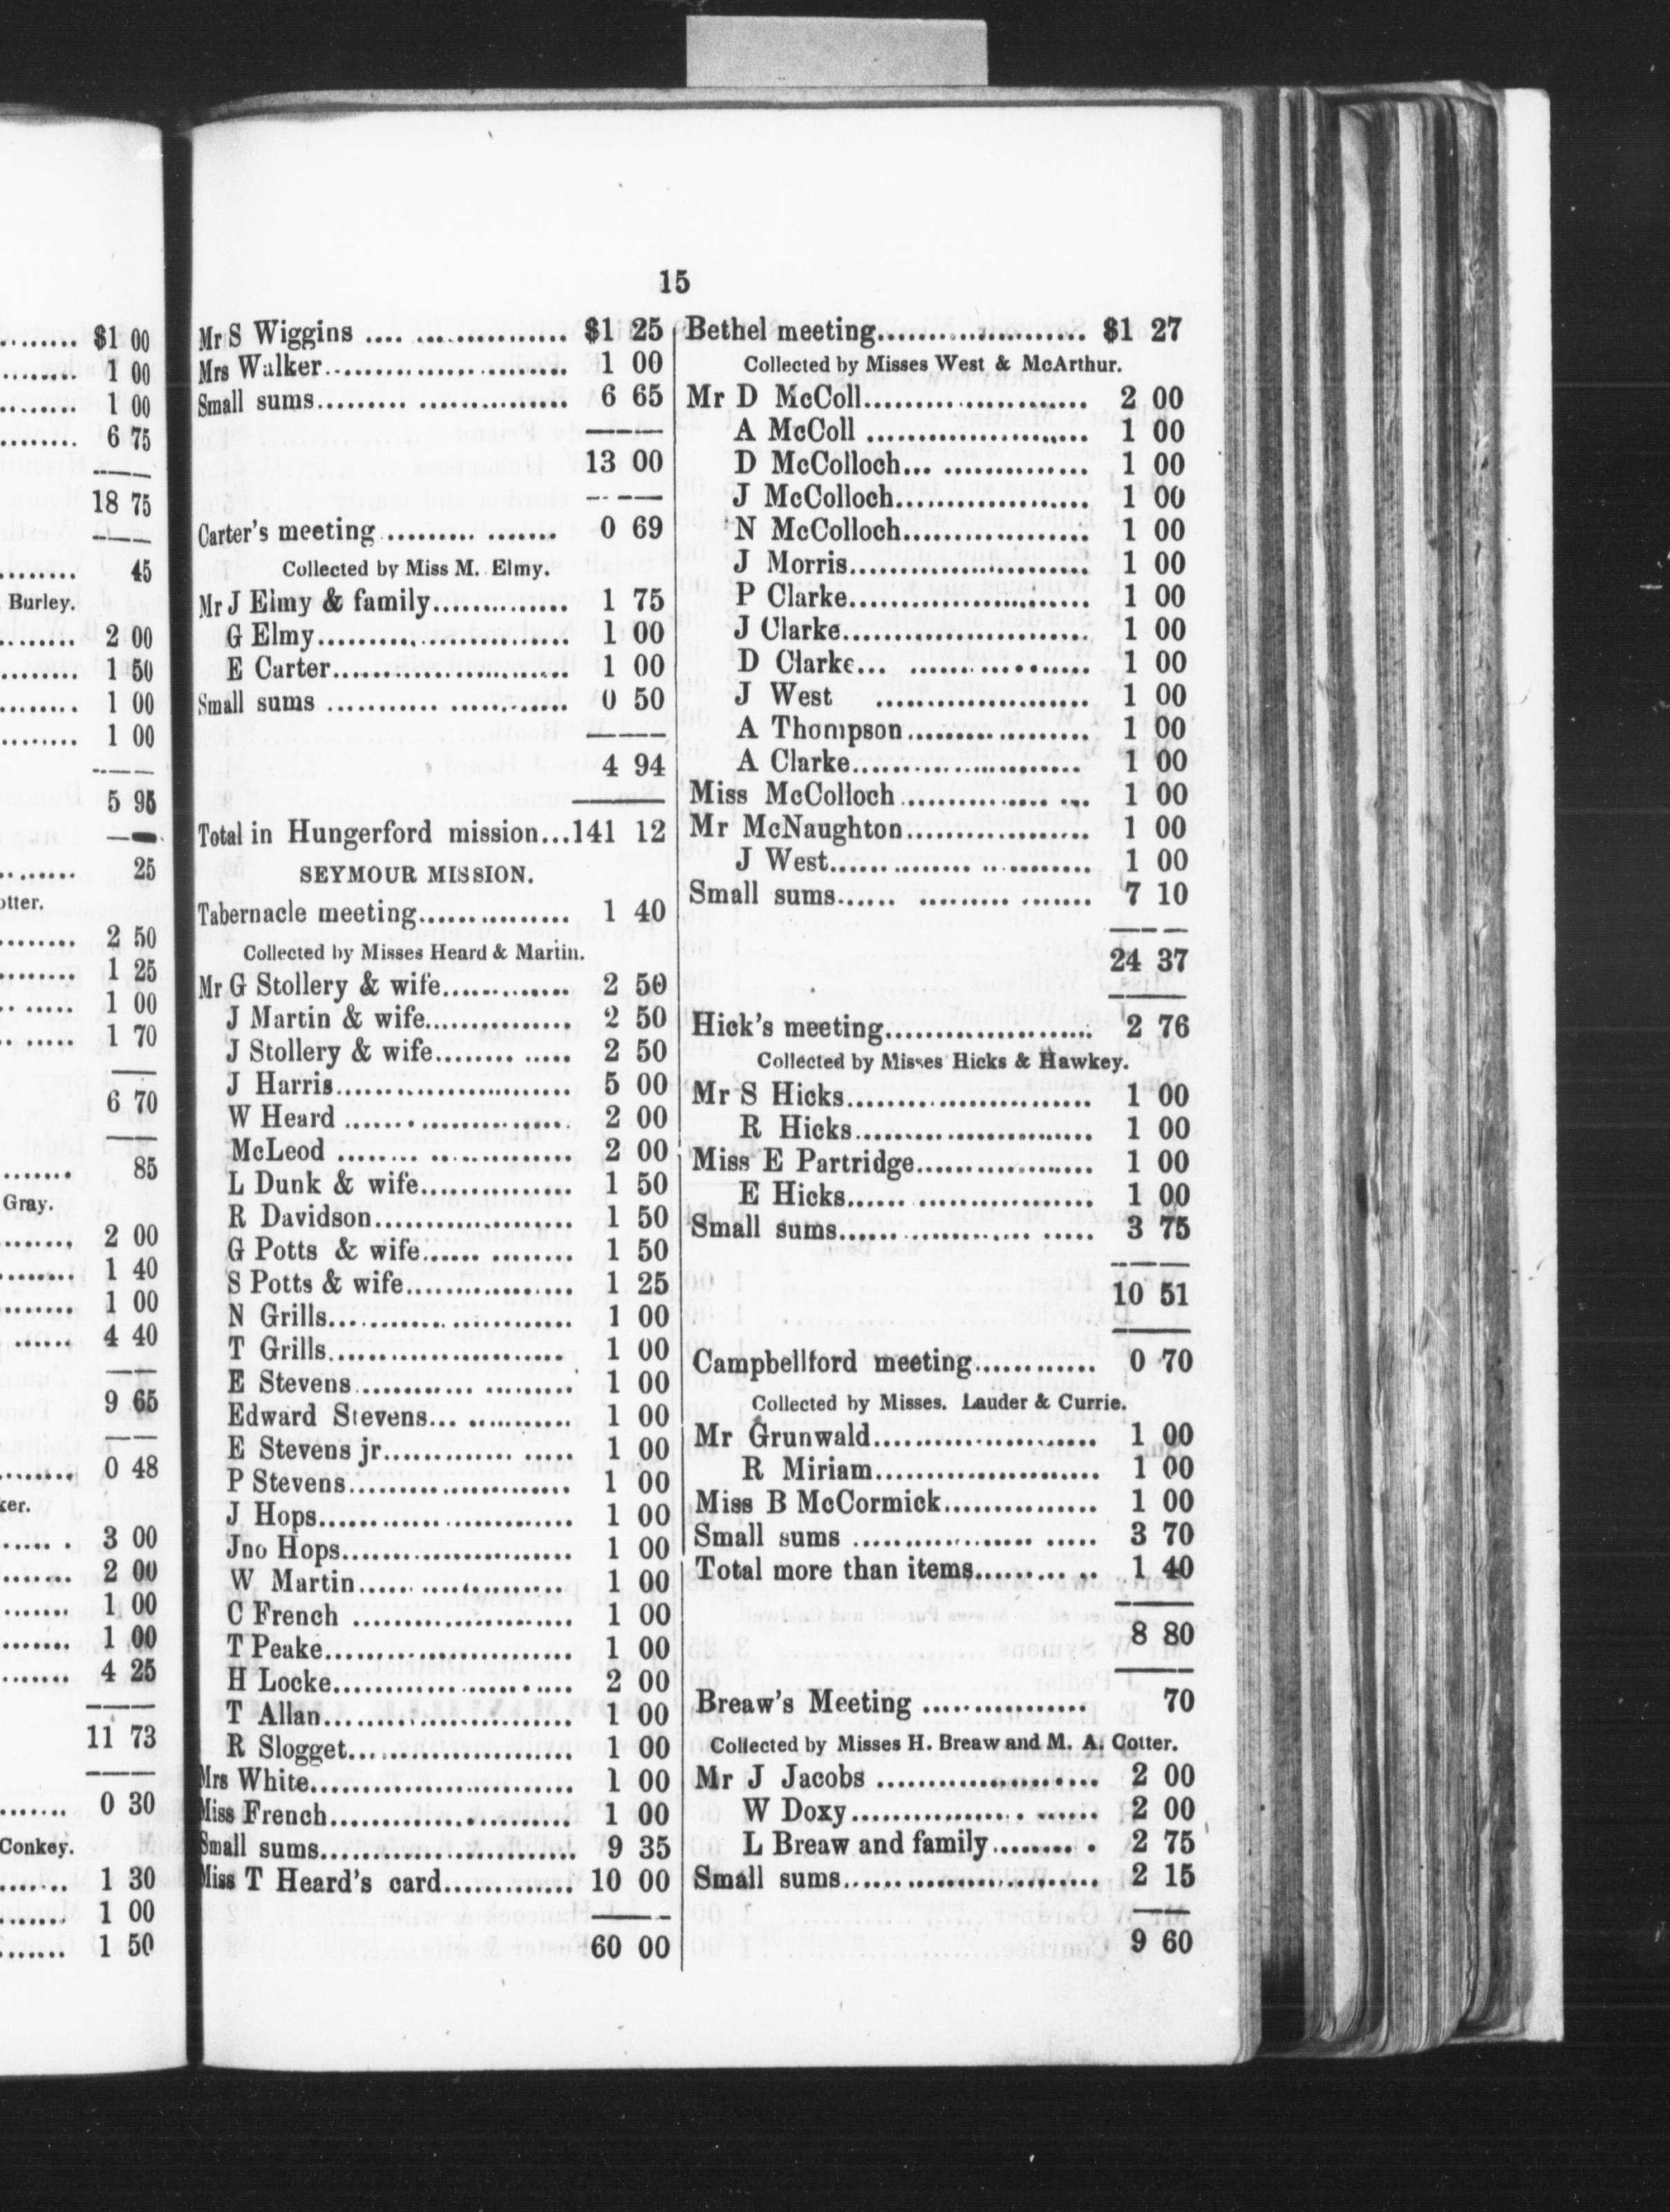 $1 00
1 00
1 00
6 75
18 75
45
Burley.
2 00
1 50
1 00
1 00
5 95
25
otter.
2 50
1 25
1 00
1 70
6 70
85
Gray.
2 00
1 40
1 00
4 40
9 65
0 48
ker.
3 00
2 00
1 00
1 00
4 25
11 73
0 30
Conkey.
1 30
1 00
1 50
15
Mr S Wiggins .... ................ $1 25
Mrs Walker........................ 1 00
Small sums......... ............... 6 65
13 00
Carter's meeting ......... ....... 0 69
Collected by Miss M. Elmy.
Mr J Elmy & family.............. 1 75
G Elmy.......................... 1 00
E Carter........................ 1 00
Small sums ........... ............ 0 50
4 94
Total in Hungerford mission...141 12
SEYMOUR MISSION.
Tabernacle meeting............... 1 40
Collected by Misses Heard & Martin.
Mr G Stollery & wife............. 2 50
J Martin & wife............... 2 50
J Stollery & wife........ ..... 2 50
J Harris........................ 5 00
W Heard ....................... 2 00
McLeod ........ .............. 2 00
L Dunk & wife............... 1 50
R Davidson.................... 1 50
G Potts & wife...... ......... 1 50
S Potts & wife................. 1 25
N Grills......................... 1 00
T Grills........................ 1 00
E Stevens............ ......... 1 00
Edward Stevens... ........... 1 00
E Stevens jr............. ..... 1 00
P Stevens...................... 1 00
J Hops.......................... 1 00
Jno Hops....................... 1 00
W Martin...... ............... 1 00
C French ...................... 1 00
T Peake......................... 1 00
H Locke........................ 2 00
T Allan......................... 1 00
R Slogget....................... 1 00
Mrs White.......................... 1 00
Miss French........................ 1 00
Small sums.......................... 9 35
Miss T Heard's card............. 10 00
60 00
Bethel meeting..................... $1 27
Collected by Misses West & McArthur.
Mr D McColl...................... 2 00
A McColl ...................... 1 00
D McColloch... .............. 1 00
J McColloch................... 1 00
N McColloch................... 1 00
J Morris........................ 1 00
P Clarke........................ 1 00
J Clarke......................... 1 00
D Clarke... .................. 1 00
J West ..................... 1 00
A Thompson.................. 1 00
A Clarke....................... 1 00
Miss McColloch............... ... 1 00
Mr McNaughton.................. 1 00
J West............... .. ......... 1 00
Small sums...... ......... ....... 7 10
24 37
Hick's meeting..................... 2 76
Collected by Misses Hicks & Hawkey.
Mr S Hicks......................... 1 00
R Hicks......................... 1 00
Miss E Partridge.................. 1 00
E Hicks...... .................. 1 00
Small sums...... ............. ..... 3 75
10 51
Campbellford meeting............ 0 70
Collected by Misses. Lauder & Currie.
Mr Grunwald...................... 1 00
R Miriam...................... 1 00
Miss B McCormick............... 1 00
Small sums .................. ..... 3 70
Total more than items.......... .. 1 40
8 80
Breaw's Meeting ................ 70
Collected by Misses H. Breaw and M. A. Cotter.
Mr J Jacobs ...................... 2 00
W Doxy................. . ...... 2 00
L Breaw and family........ . 2 75
Small sums.......................... 2 15
9 60